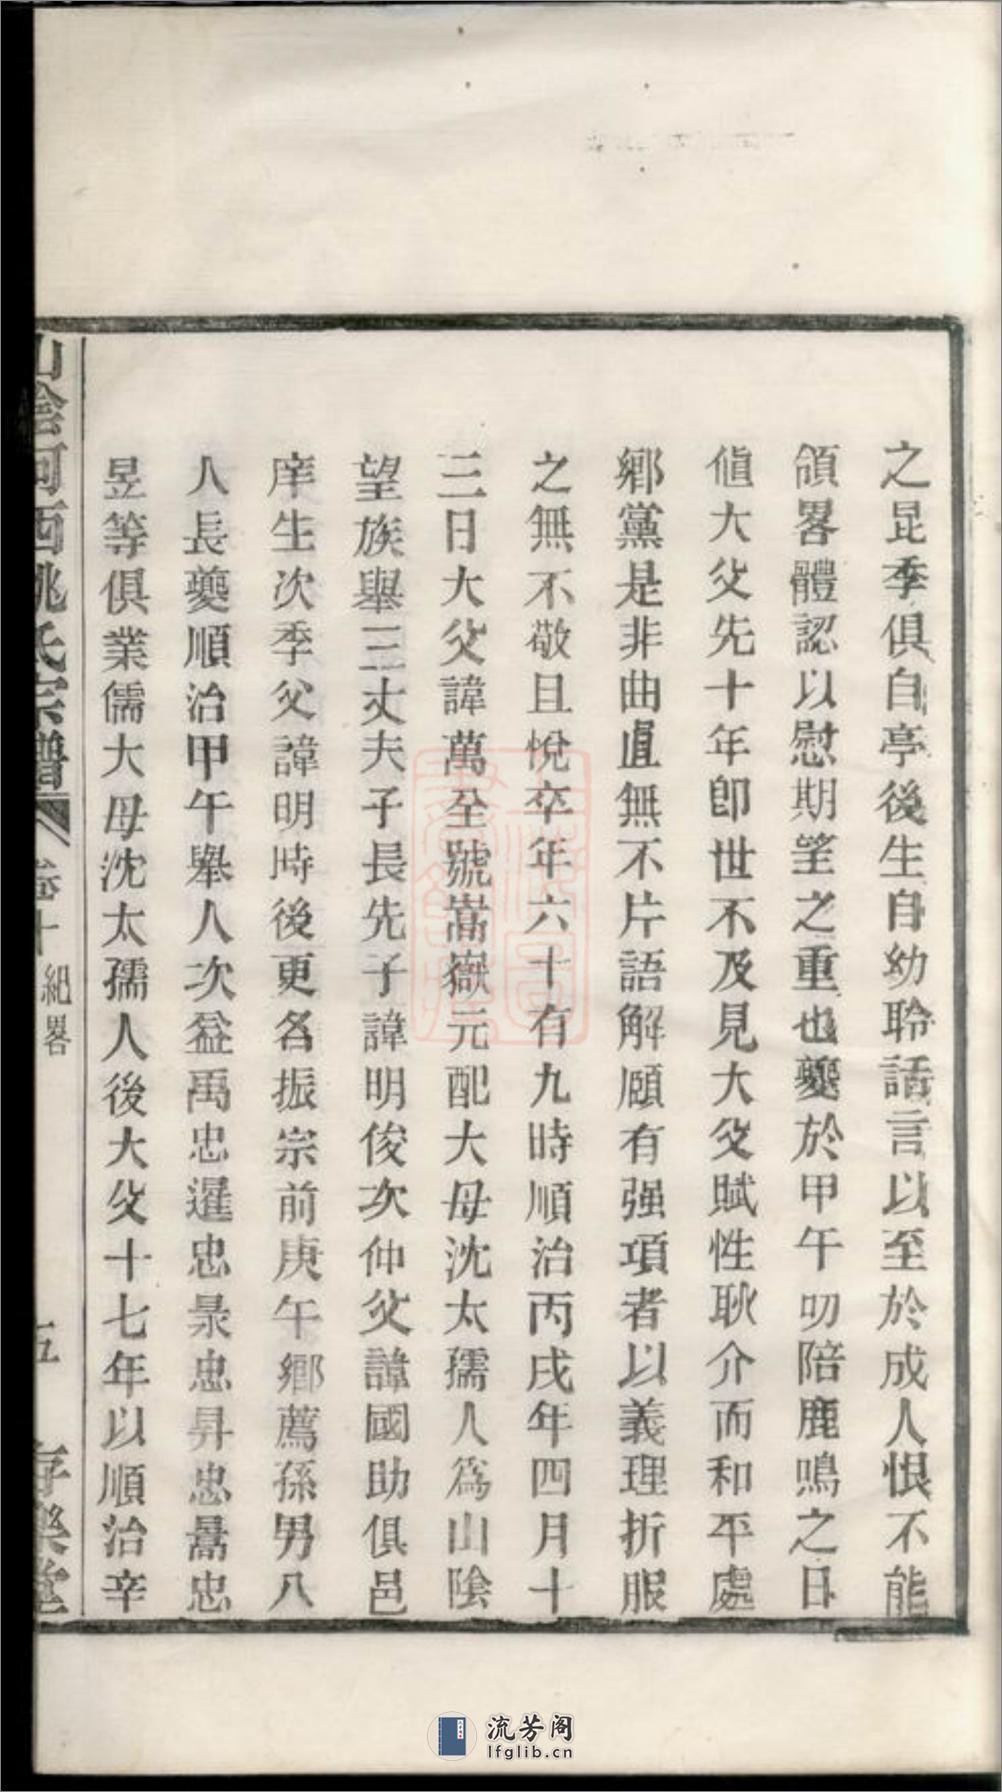 之昆季俱自亭後生自幼聆話言以至於成人恨不能
領畧體認以慰期望之重也夔於甲午叨陪鹿鳴之日
值大父先十年卽世不及見大父賦性耿介而和平處
鄉黨是非曲直無不片語解頤有强項者以義理折服
之無不敬且悅卒年六十有九時順治丙戌年四月十
三日大父諱萬全號嵩嶽元配大母沈太孺人爲山陰
望族舉三丈夫子長先子諱明俊次仲父諱國助俱邑
庠生次季父諱明時後更名振宗前庚午鄉薦孫男八
人長夔順治甲午舉人次益禹忠暹忠杲忠昇忠暠忠
昱等俱業儒大母沈太孺人後大父十七年以順治辛
山陰河西姚氏宗譜 卷十 紀畧 五 存樂堂
流芳阁
lfglib.cn